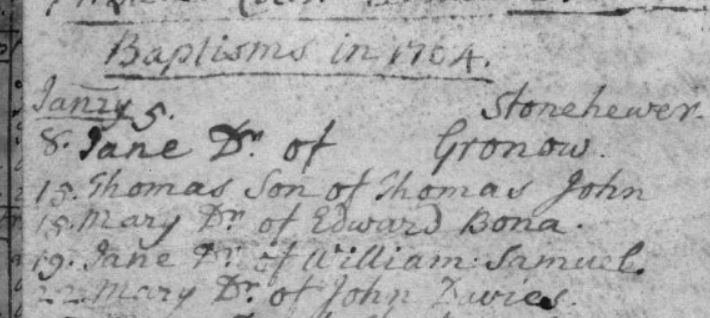 Baptisms in 1764.
Janry 5. Stonehewer.
8. Jane Dr. of Gronow.
15. Thomas Son of Thomas John
15. Mary Dr. of Edward Bona.
19. Jane Dr. of William Samuel.
22. Mary Dr. of John Davies.